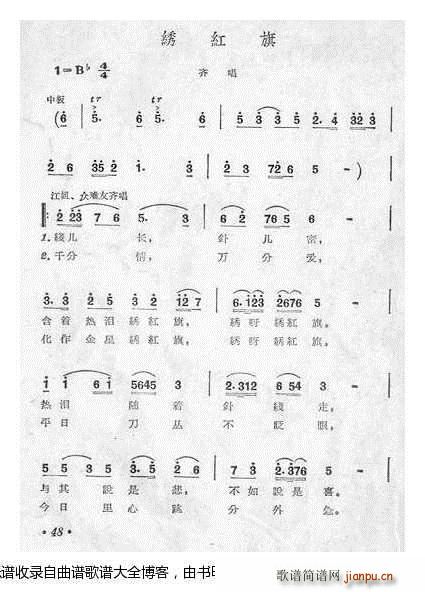 綉紅旗
1=B♭ 4/4
齐唱
中板
tr tr
(6 5. 6 5. 6 | 5 3 5 3 5 5 2. 4 3 2 3 |
2 6 3 5 2 1. 3 | 2 3 7 2 6 5 - )
江姐、众难友齐唱
2 2 3 7 6 5. 3 | 6 2 7 6 5 6 - |
1.綫儿长，針儿密，
2.千分情，万分爱，
3. 3 2 5 3 2 1 2 7 | 6. 1 2 3 2 6 7 6 5 - |
含着热泪綉紅旗，綉呀綉紅旗。
化作金星綉紅旗，綉呀綉紅旗。
1 1 6 1 5 6 4 5 3 | 2. 3 1 2 6 5 4 3 - |
热泪随着針綫走，
平日刀丛不眨眼，
5 5 3 2 3. 5 2 6 | 7 3 2. 3 7 6 5 - |
与其說是悲，不如說是喜。
今日里心跳分外急。
·48·
谱收录自曲谱歌谱大全博客，由书
歌谱简谱网
jianpu.cn